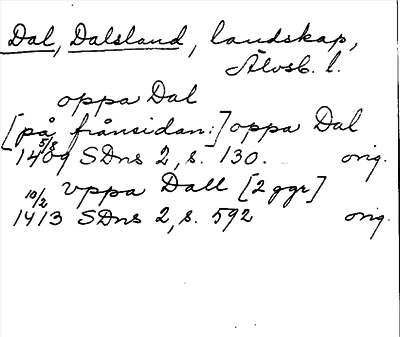 Dal, Dalsland, landskap,
Älvsb. l.
oppa Dal
[på frånsidan:] oppa Dal
5/8 1409 SDns 2, s. 130. orig.
10/2 uppa Dall [2 ggr]
1413 SDns 2, s. 592 orig.